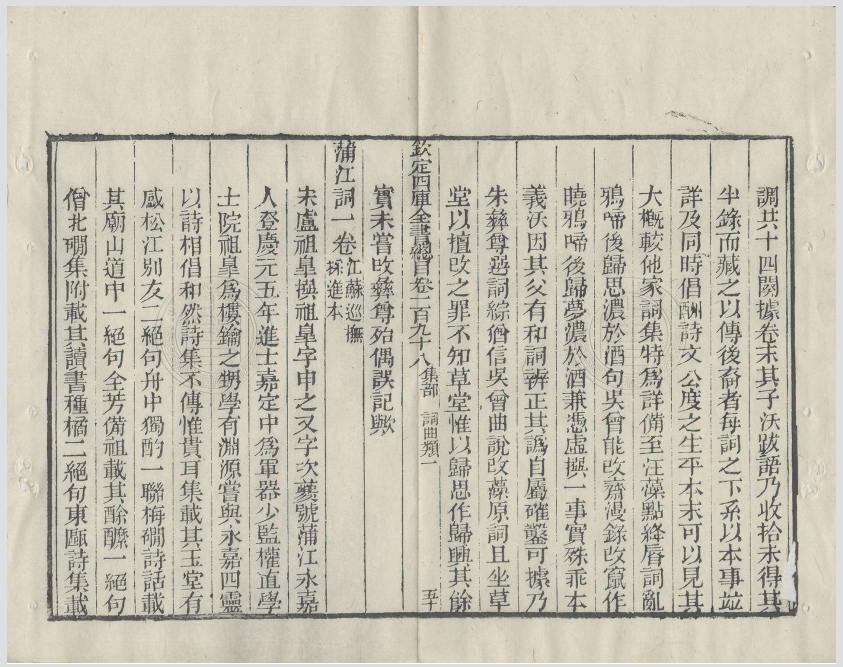 調共十四闋據卷末其子沃跋語乃收拾未得其
半錄而藏之以傳後裔者每詞之下系以本事並
詳及同時倡酬詩文公度之生平本末可以見其
大槪較他家詞集特爲詳備至汪藻點絳脣詞亂
鴉啼後歸思濃於酒句吳曾能改齋漫錄改竄作
曉鴉啼後歸夢濃於酒兼憑虛撰一事實殊乖本
義沃因其父有和詞辨正其譌自屬確鑿可據乃
朱彝尊選詞綜猶信吳曾曲說改藻原詞且坐草
堂以擅改之罪不知草堂惟以歸思作歸興其餘
欽定四庫全書總目卷一百九十八 集部 詞曲類一 五十
實未嘗改彝尊殆偶誤記歟
蒲江詞一卷 江蘇巡撫採進本
宋盧祖皋撰祖皋字申之又字次夔號蒲江永嘉
人登慶元五年進士嘉定中爲軍器少監權直學
士院祖皋爲樓鑰之甥學有淵源嘗與永嘉四靈
以詩相倡和然詩集不傳惟貴耳集載其玉堂有
感松江別友二絕句舟中獨酌一聯梅磵詩話載
其廟山道中一絕句全芳備祖載其酴醾一絕句
僧北磵集附載其讀書種橘二絕句東甌詩集載